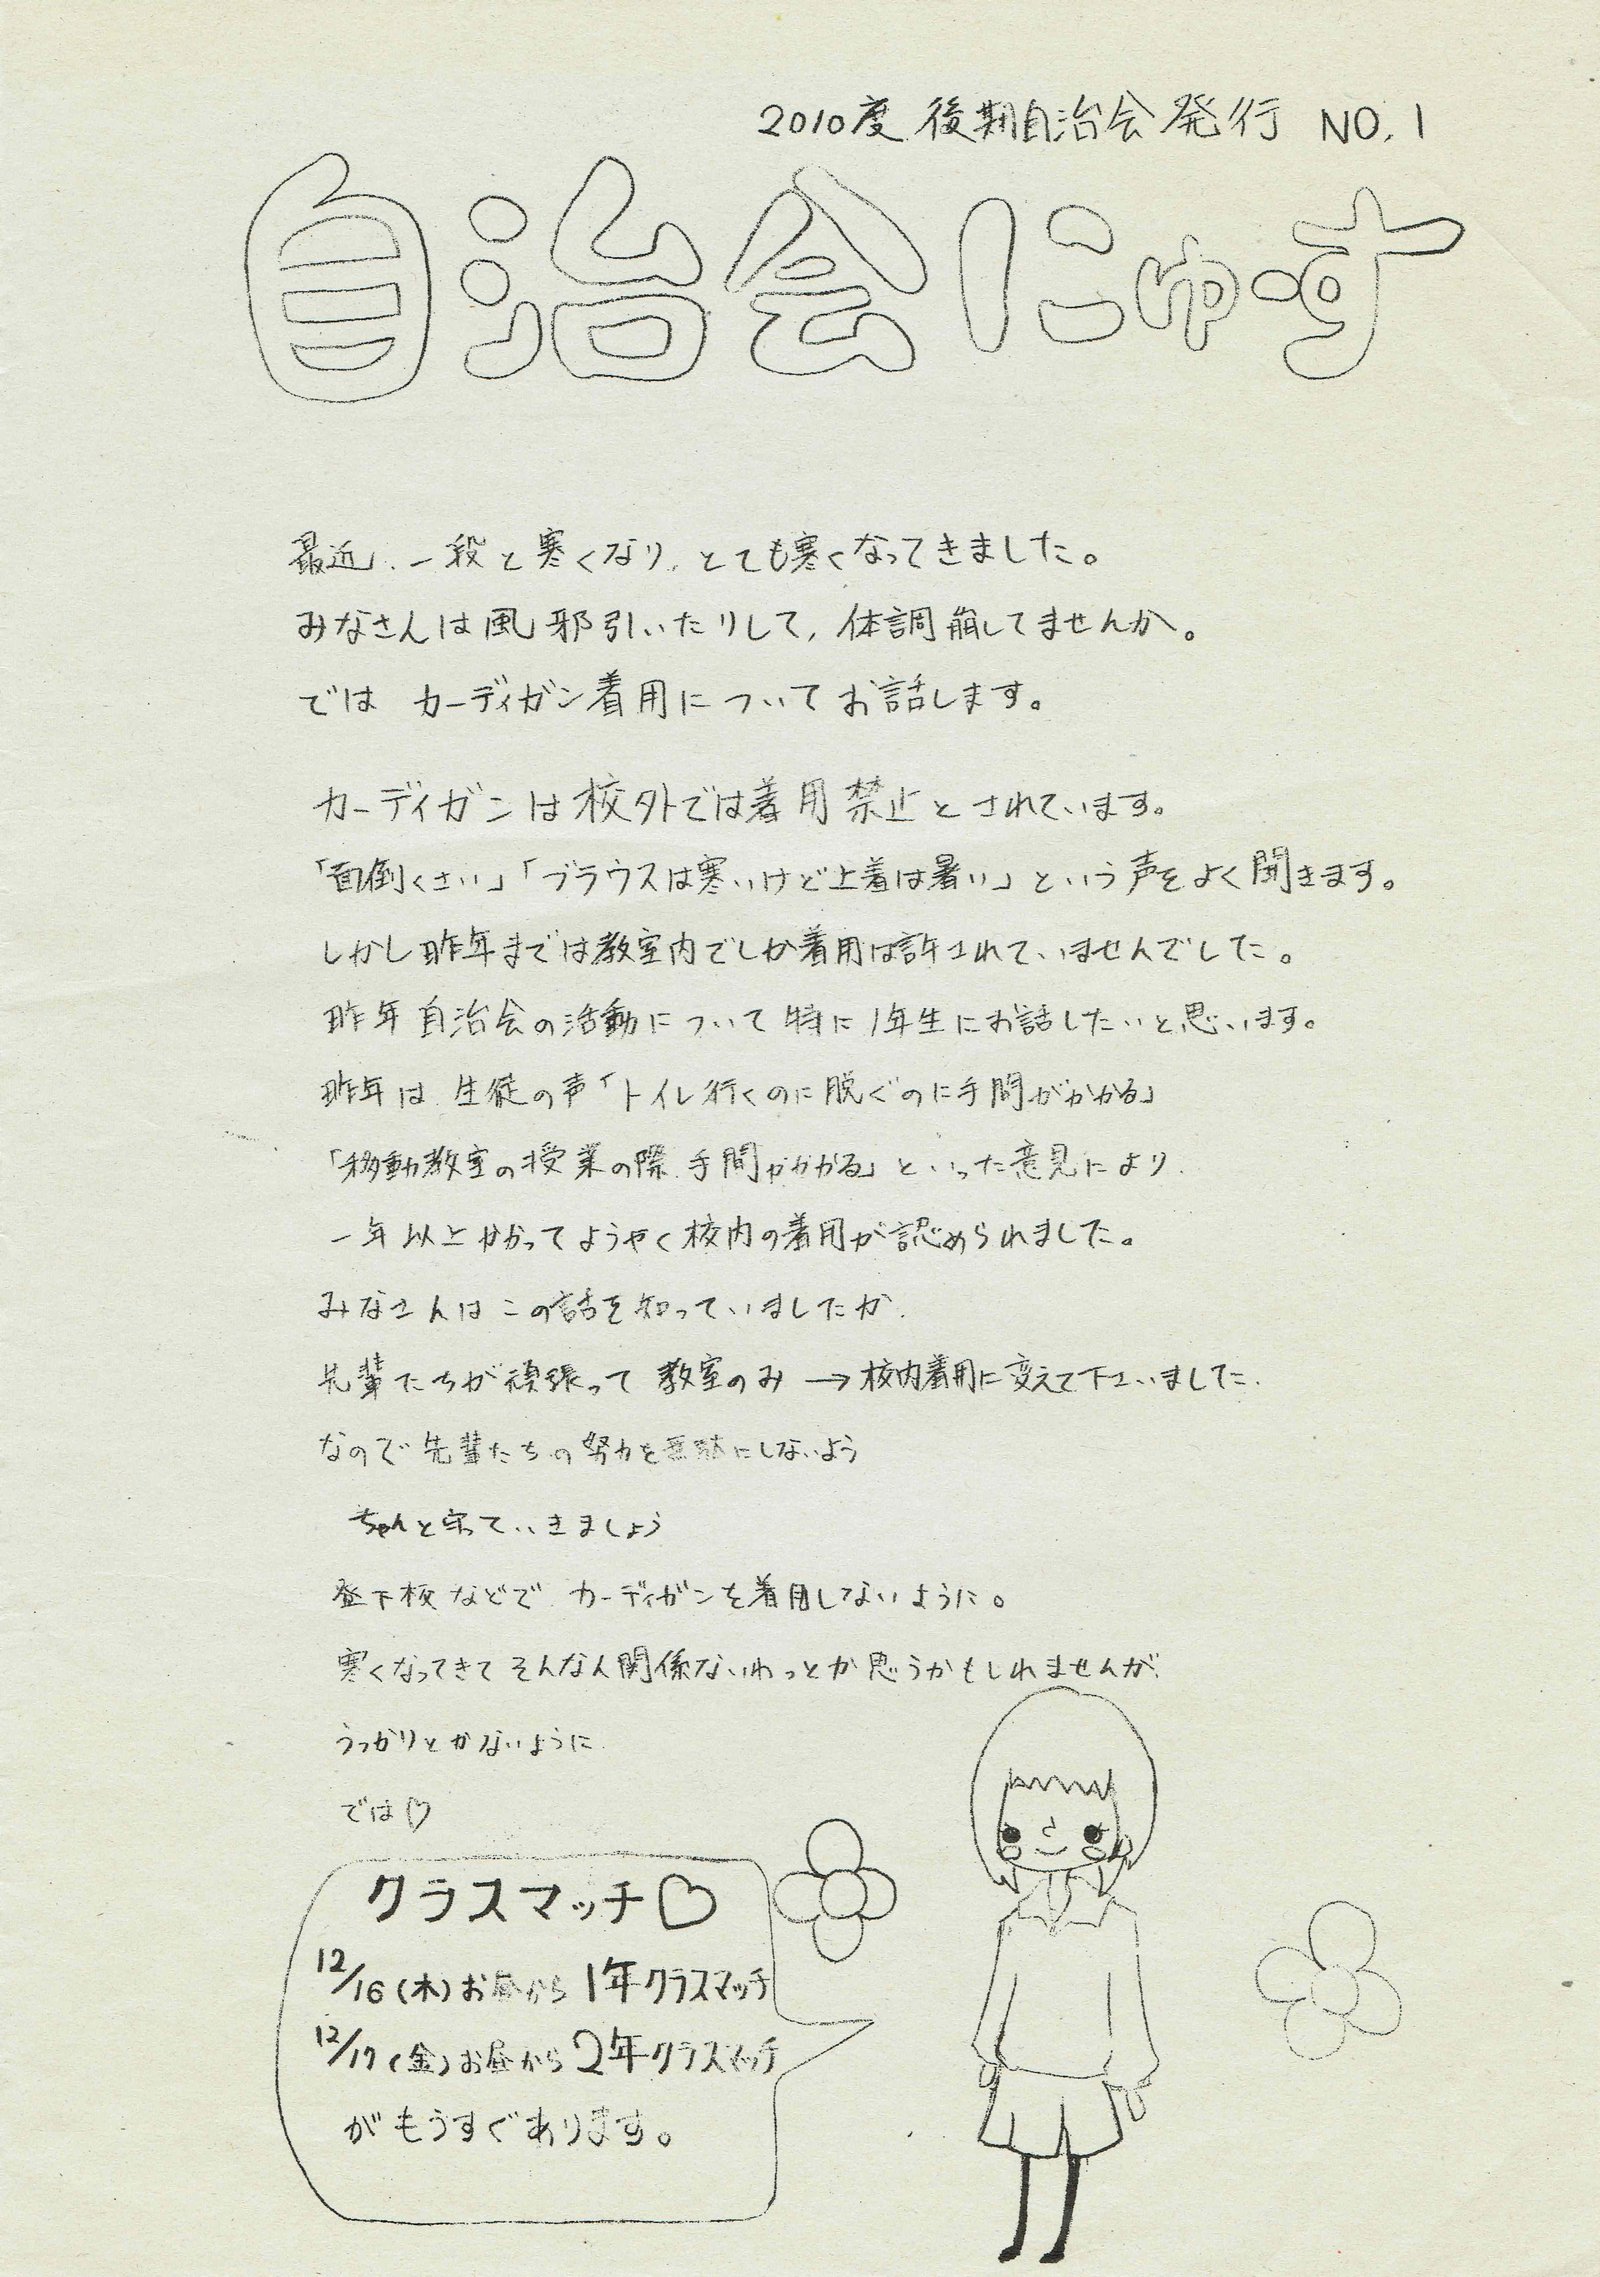 2010度 後期自治会発行 NO.1
自治会にゅーす
最近、一段と寒くなり、とても寒くなってきました。
みなさんは風邪引いたりして、体調崩してませんか。
では カーディガン着用についてお話します。
カーディガンは校外では着用禁止とされています。
「面倒くさい」「ブラウスは寒いけど上着は暑い」という声をよく聞きます。
しかし昨年までは教室内でしか着用は許されていませんでした。
昨年自治会の活動について特に1年生にお話したいと思います。
昨年は 生徒の声「トイレ行くのに脱ぐのに手間がかかる」
「移動教室の授業の際、手間がかかる」といった意見により、
一年以上かかってようやく校内の着用が認められました。
みなさんはこの話を知っていましたか、
先輩たちが頑張って 教室のみ→校内着用に変えて下さいました、
なので先輩たちの努力を無駄にしないよう
ちゃんと守っていきましょう
登下校などで カーディガンを着用しないように。
寒くなってきてそんなん関係ないわっとか思うかもしれませんが、
うっかりとかないように
では♡
クラスマッチ♡
12/16(木)お昼から 1年クラスマッチ
12/17(金)お昼から 2年クラスマッチ
がもうすぐあります。